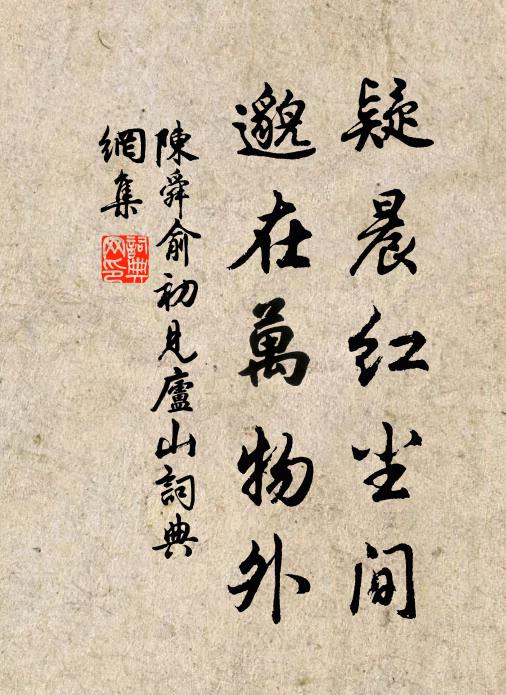 疑晨红尘间
邈在萬物外
陳舜俞初見廬山詞典
網集
詞典網印